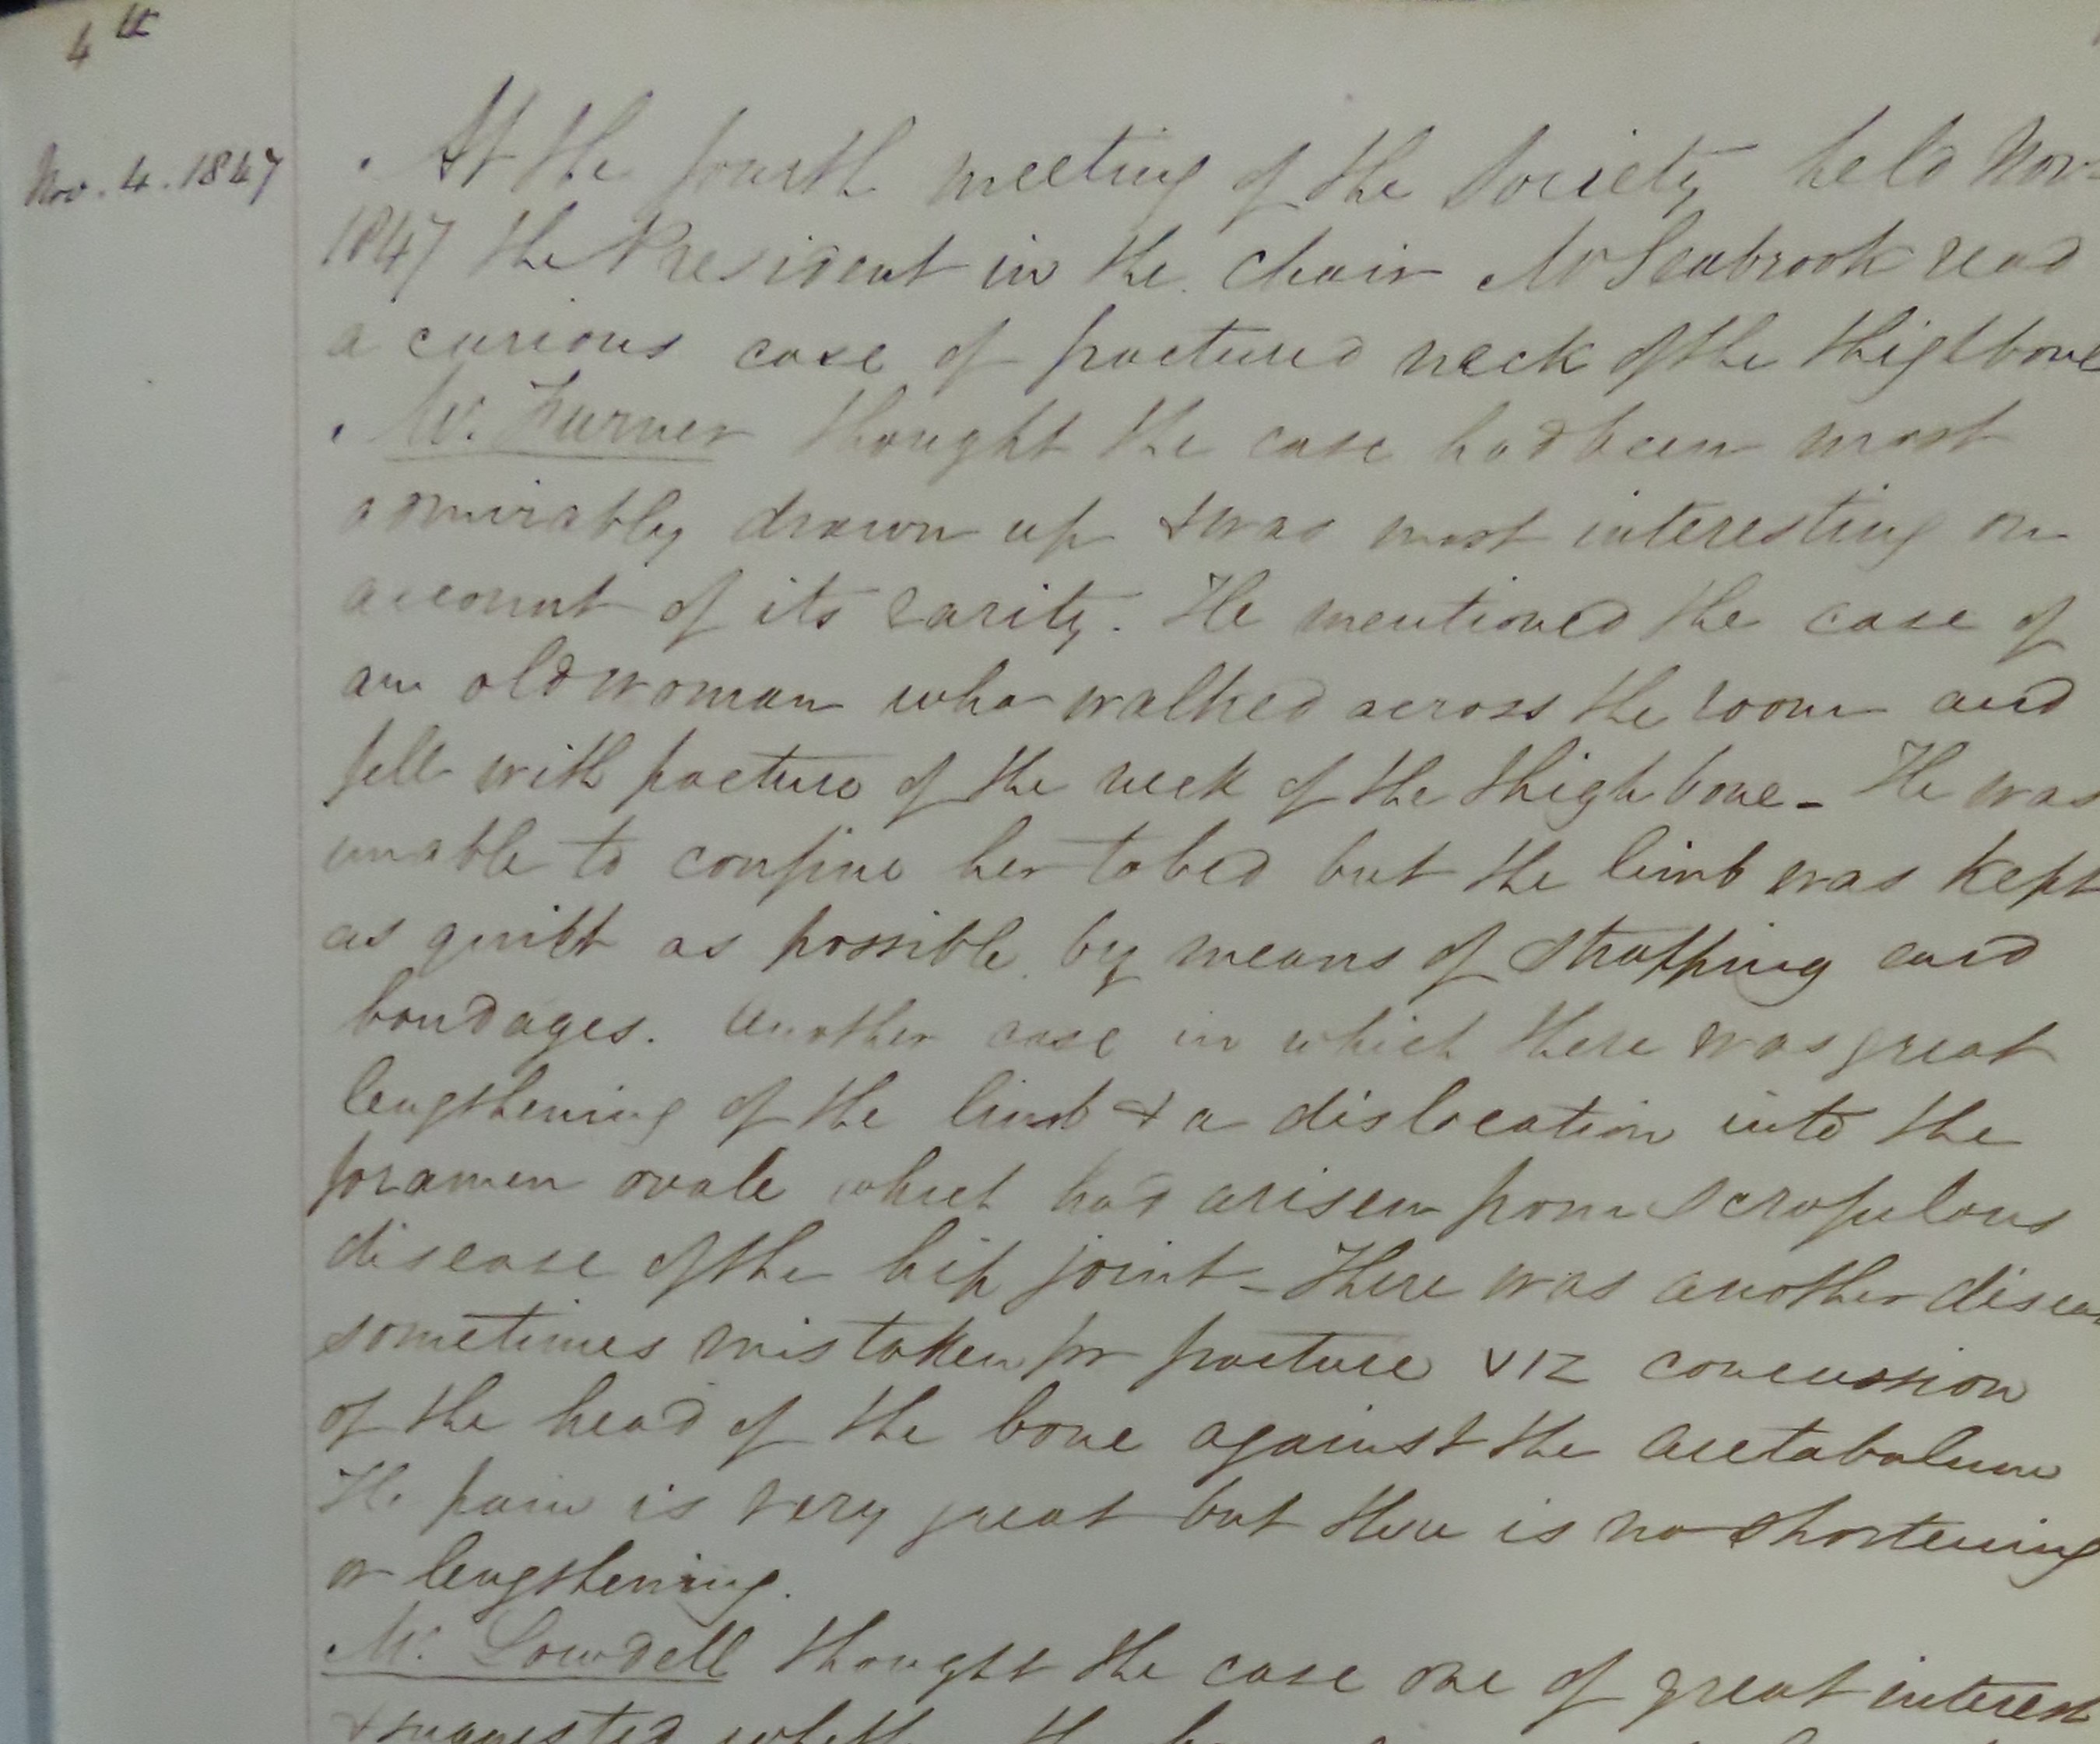 4th
Nov. 4. 1847
At the fourth meeting of the Society held Nov
1847 the President in the chair Mr Seabrook read
a curious case of fractured neck of the thighbone
Mr. Furner thought the case had been most
admirably drawn up & was most interesting on
account of its rarity. He mentioned the case of
an old woman who walked across the room and
fell with fracture of the neck of the thigh bone - He was
unable to confine her to bed but the limb was kept
as quiet as possible by means of strapping and
bandages. Another case in which there was great
lengthening of the limb & a dislocation into the
foramen ovale which had arisen from scrofulous
disease of the hip joint - There was another disea
sometimes mistaken for fracture viz concussion
of the head of the bone against the acetabulum
The pain is very great but there is no shortening
or lengthening.
Mr. Lowdell thought the case one of great interest
& suggested